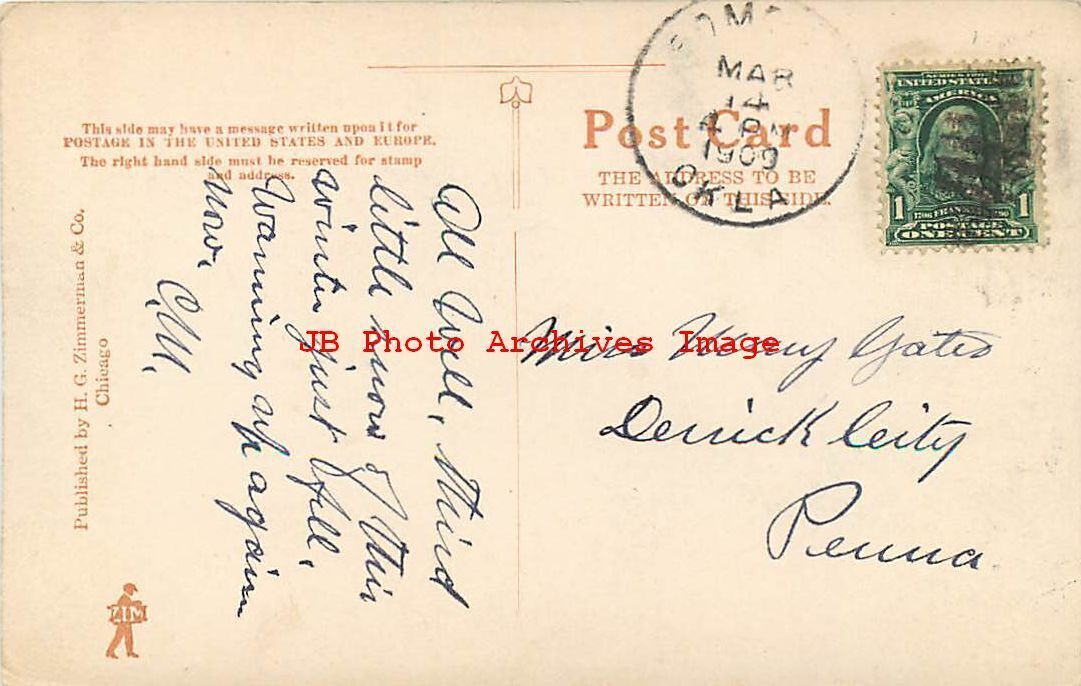 This side may have a message written upon it for
POSTAGE IN THE UNITED STATES AND EUROPE.
The right hand side must be reserved for stamp
and address.
Post Card
THE ADDRESS TO BE
WRITTEN ON THIS SIDE.
MAR
14
1909
OKLA
SERIES 1902
UNITED STATES OF
AMERICA
1 FRANKLIN 1
POSTAGE
ONE CENT
All Well, Third
little snow of this
winter just fell,
Warming up again
now.
C.M.
Miss Mary Yates
Derrick City
Penna
Published by H. G. Zimmerman & Co.
Chicago
ZIM
JB Photo Archives Image